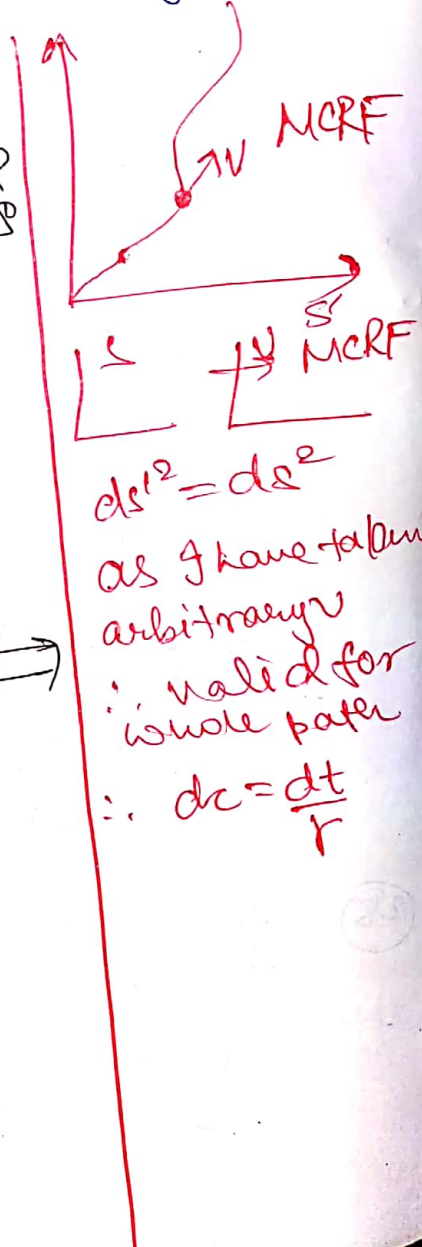 V MCRF
S'
S
V MCRF
ds'² = ds²
as I have taken
arbitrary v
∴ valid for
whole path
∴ dτ = dt/γ